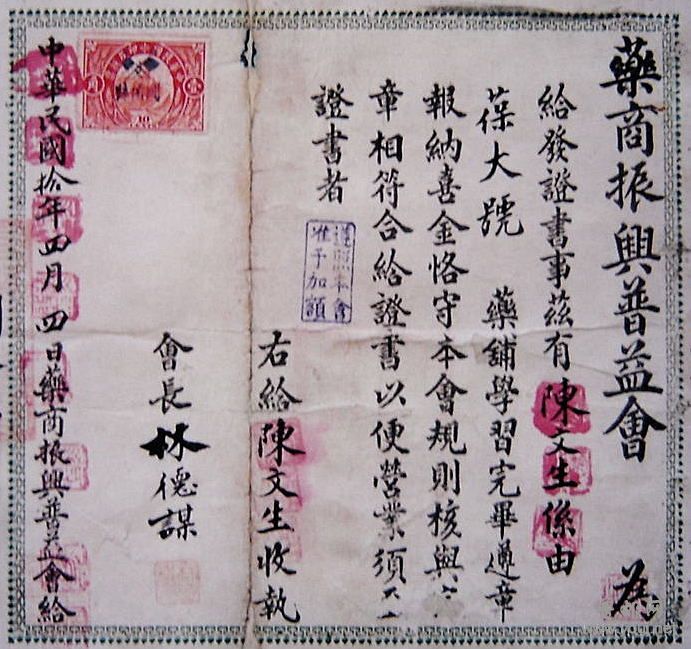 藥商振興普益會 為
給發證書事茲有陳文生係由
葆大號 藥鋪學習完畢遵章
報納喜金恪守本會規則核與
章相符合給證書以便營業須
證書者
遵照本會
准予加額
右給陳文生收執
會長林德謀
中華民國拾年四月四日藥商振興普益會給